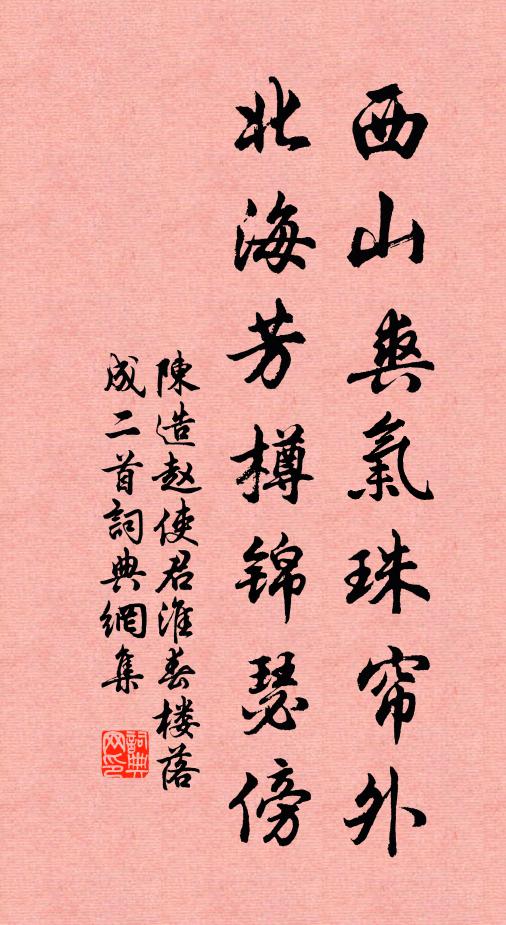 西山爽氣珠帘外
北海芳樽锦瑟傍
陳造赵使君淮春楼落
成二首詞典網集
詞典网印